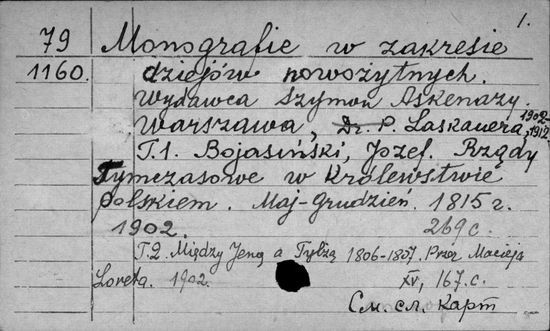 1.
79 Monografie w zakresie
1160. dziejów nowożytnych.
Wydawca Szymon Askenazy.
Warszawa, Dr. P. Laskauera, 1902-1912.
T.1. Bojasiński, Józef. Rządy
Tymczasowe w Królewstwie
Polskiem. Maj-Grudzień. 1815 г.
1902. 269 с.
T.2. Między Jeną a Tylżą 1806-1807. Przez Macieja
Loreta. 1902. XV, 167. с.
См. сл. карт